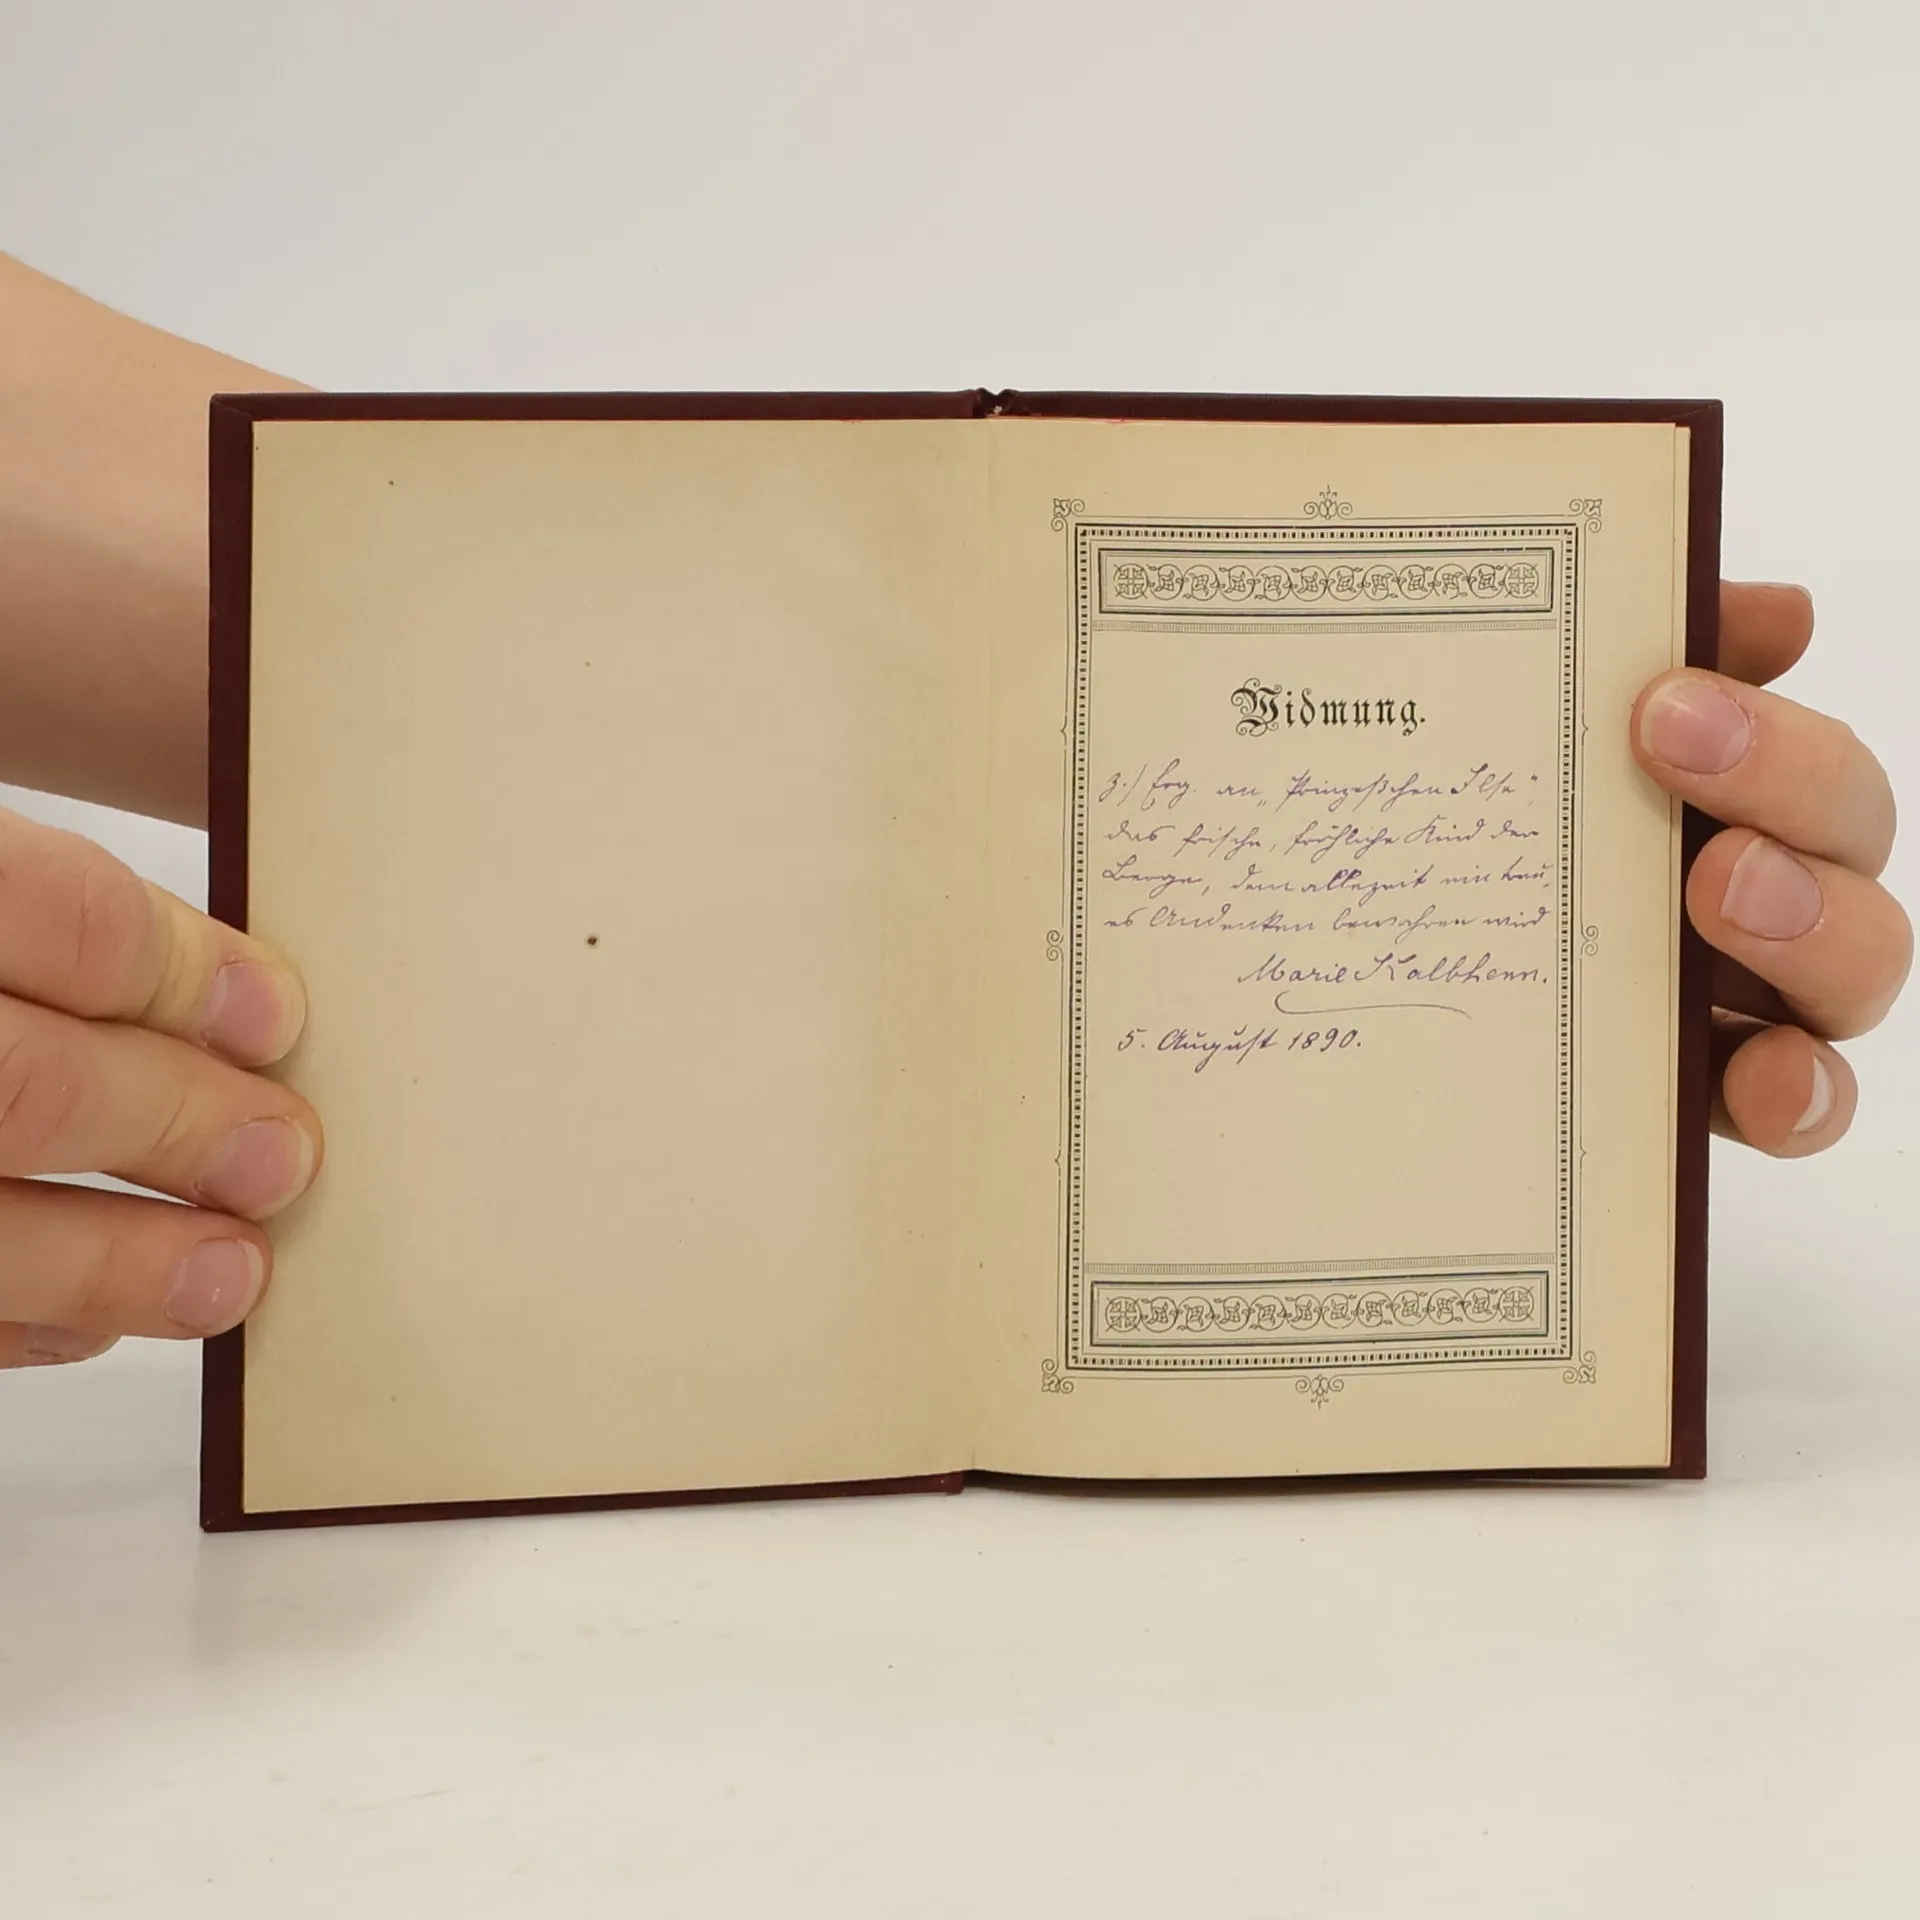 Widmung.
z./ Erg. an „Prinzeßchen Ilse“,
das frische, fröhliche Kind der
Berge, dem allezeit ein treu-
es Andenken bewahren wird
Marie Kalbhenn.
5. August 1890.